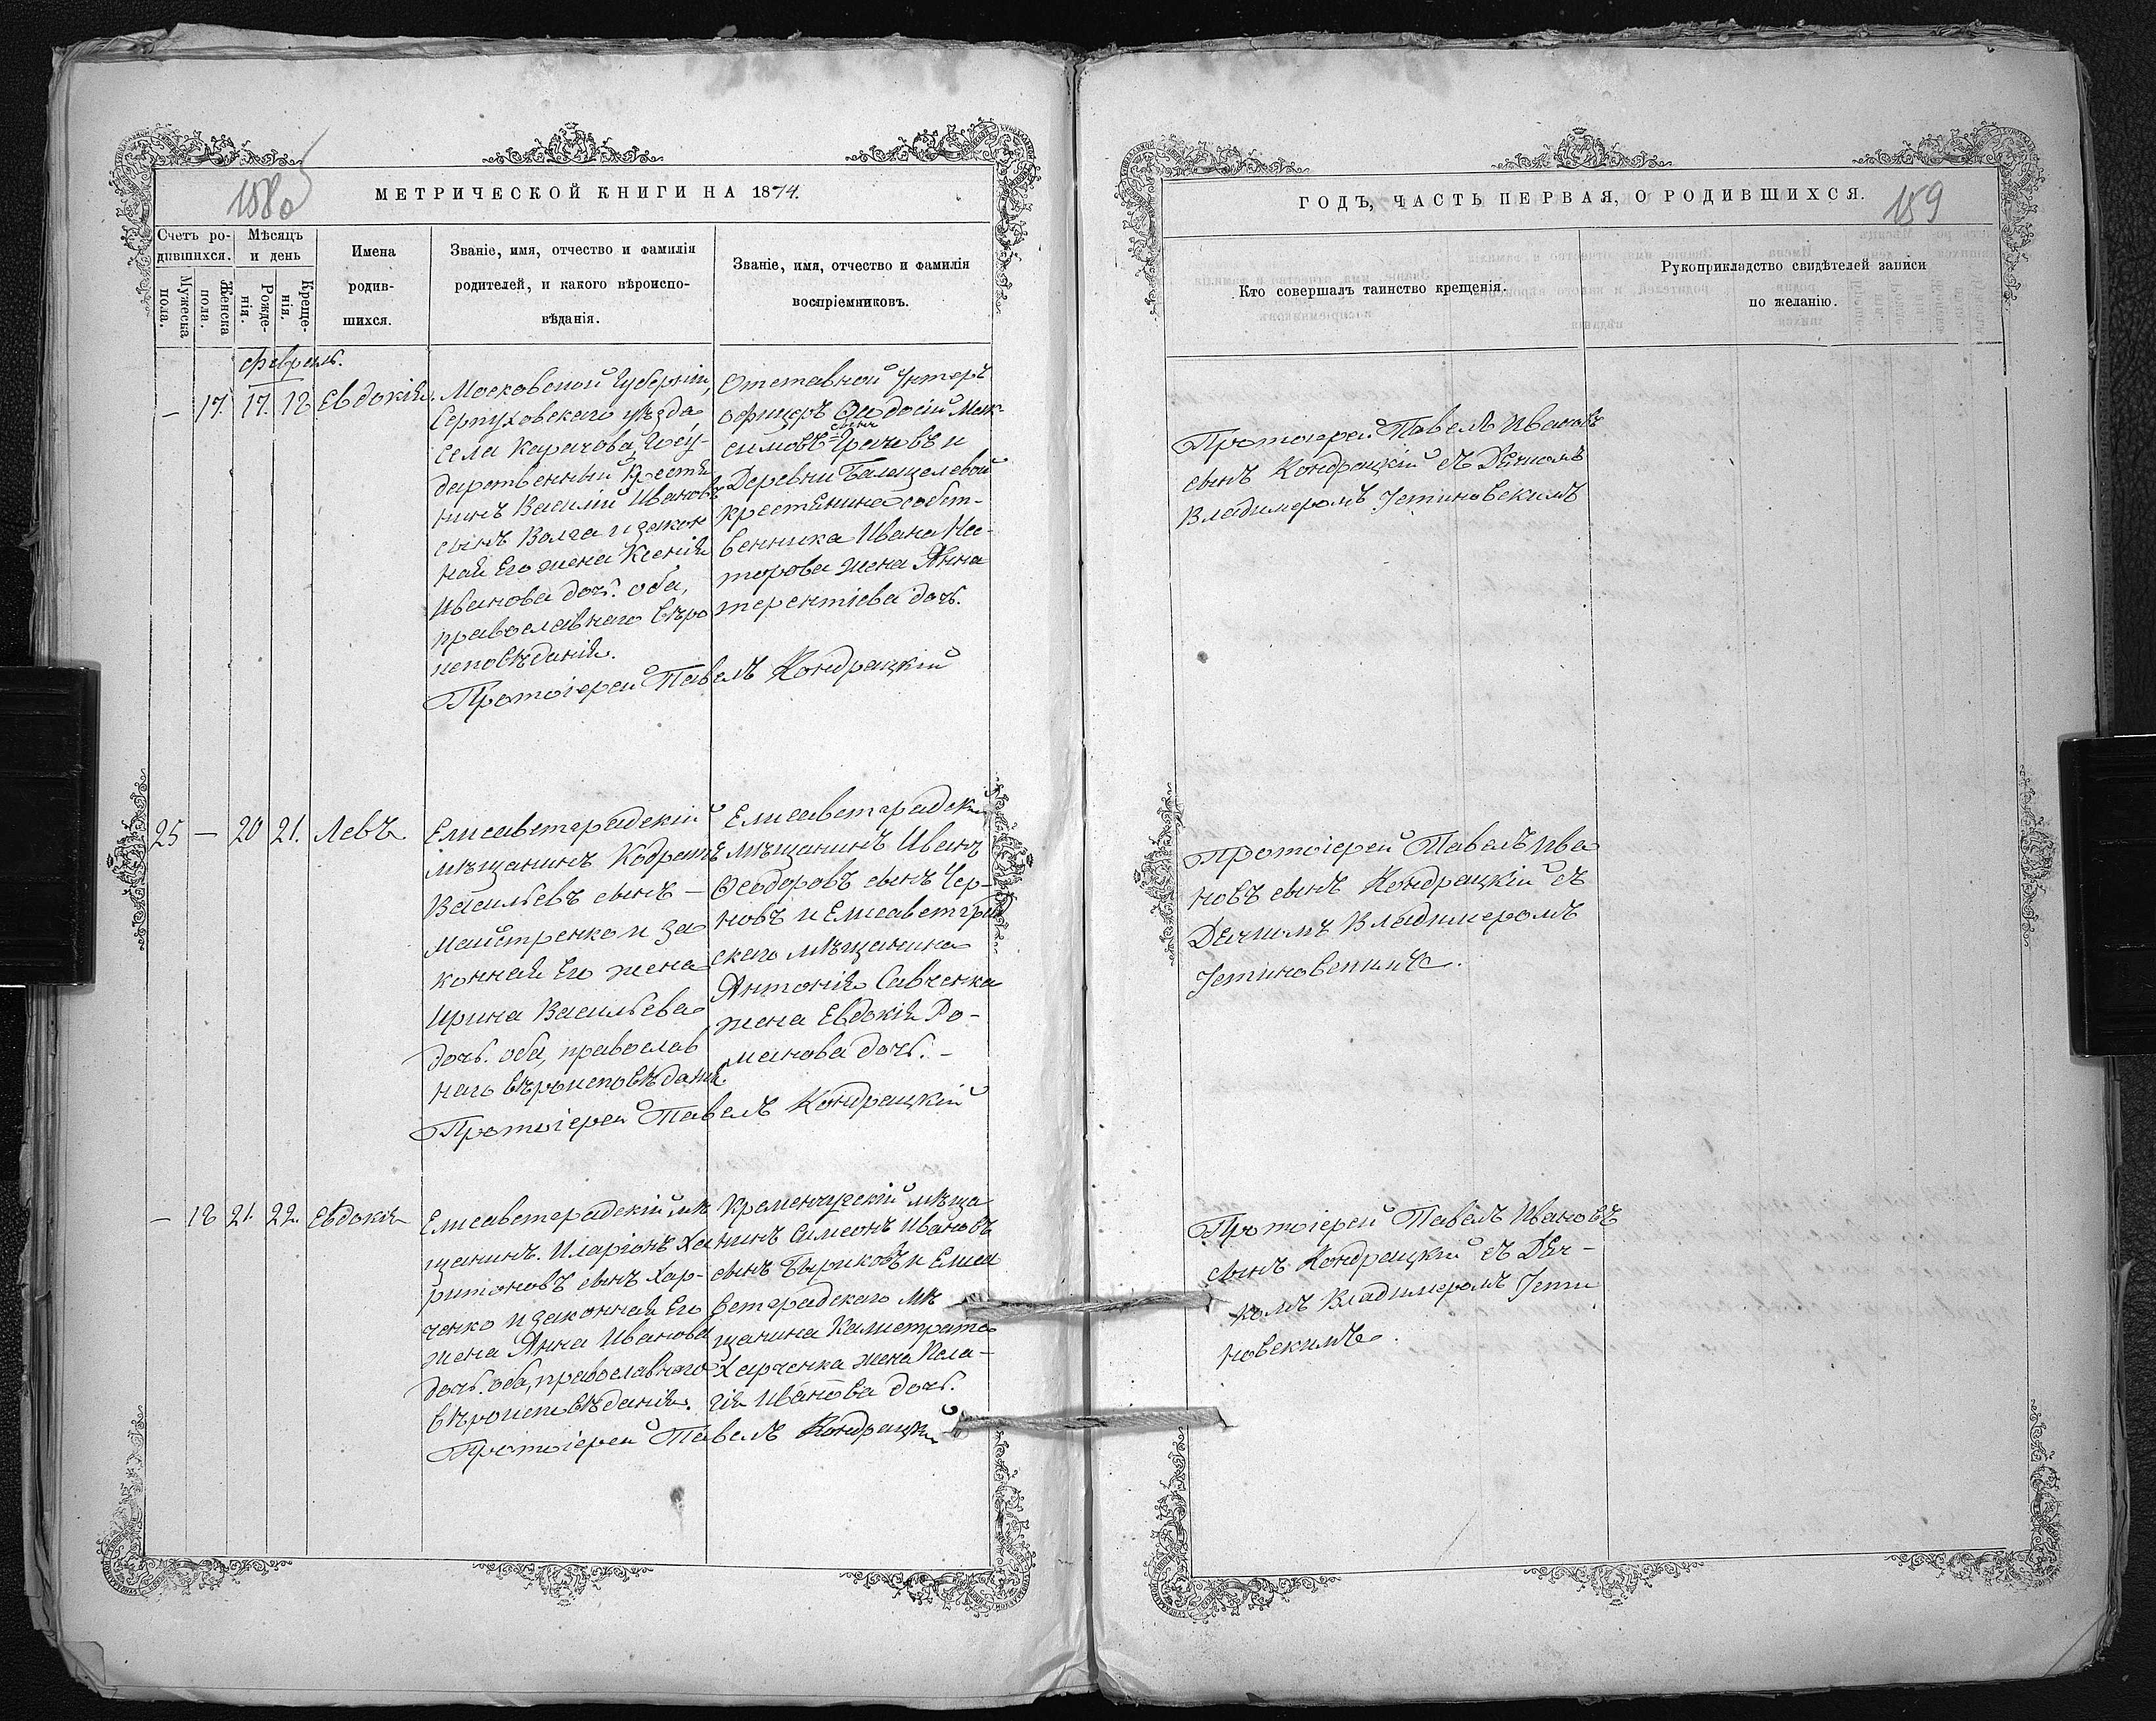 188об
МЕТРИЧЕСКОЙ КНИГИ НА 1874.
Счетъ ро-
дившихся.
Мѣсяцъ
и день
Мужеска
пола.
Женска
пола.
Рожде-
нія.
Креще-
нія.
Имена
родив-
шихся.
Званіе, имя, отчество и фамилія
родителей, и какого вѣроиспо-
вѣданія.
Званіе, имя, отчество и фамилія
воспріемниковъ.
февраль.
— 17. 17. 18 Евдокія.
Московской Губерніи,
Серпуховскаго уѣзда
села Карачова, Госу-
дарственный Крестья
нинъ Василій Ивановъ
сынъ Волга и закон
ная Его жена Ксенія
Иванова дочь. оба,
православнаго вѣро
исповѣданія.
Отставной Унтеръ
офицеръ Ѳеодосій Мак-
симовъ сынъ Грачовъ и
Деревни
крестьянина собст-
венника Ивана Нес-
торова жена Анна
терентіева дочь.
Протоіерей Павелъ Кондрацкій
25 — 20 21. Левъ
Елисаветградскій
мѣщанинъ Кодратъ
Васильевъ сынъ —
Майстренко и за
конная Его жена
Ирина Васильева
дочь. оба, православ
наго вѣроисповѣданія.
Елисаветградскій
мѣщанинъ Иванъ
Ѳеодоровъ сынъ Чер-
новъ и Елисаветград
скаго мѣщанина
Антонія Савченка
жена Евдокія Ро-
манова дочь. —
Протоіерей Павелъ Кондрацкій
— 18 21. 22. Евдокія
Елисаветградскій мѣ
щанинъ. Иларіонъ Ха
ритоновъ сынъ Хар-
ченко и законная Его
жена Анна Иванова
дочь. оба, православнаго
вѣроисповѣданія.
Кременчугскій мѣща
нинъ Симеонъ Ивановъ
сынъ Быриковъ и Елиса
ветградскаго мѣ
щанина Калистрата
Харченка жена Пела-
гія Иванова дочь.
Протоіерей Павелъ Кондрацкій
ГОДЪ, ЧАСТЬ ПЕРВАЯ, О РОДИВШИХСЯ.
189
Кто совершалъ таинство крещенія.
Рукоприкладство свидѣтелей записи
по желанію.
Протоіерей Павелъ Ивановъ
сынъ Кондрацкій съ Дьякомъ
Владимеромъ Устиновскимъ
Протоіерей Павелъ Ива
новъ сынъ Кондрацкій съ
Дьячкомъ Владимеромъ
Устиновскимъ.
Протоіерей Павелъ Ивановъ
сынъ Кондрацкій съ Дья-
комъ Владимеромъ Усти
новскимъ.